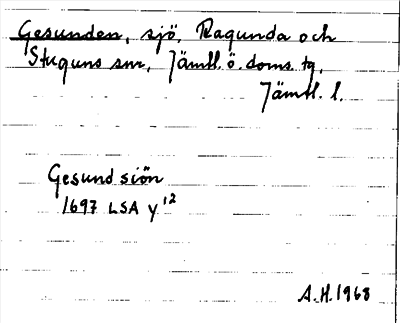 Gesunden, sjö, Ragunda och
Stuguns snr, Jämtl. ö. doms. tg,
Jämtl. l.
Gesund siön
1697 LSA Y 12
A.H. 1968